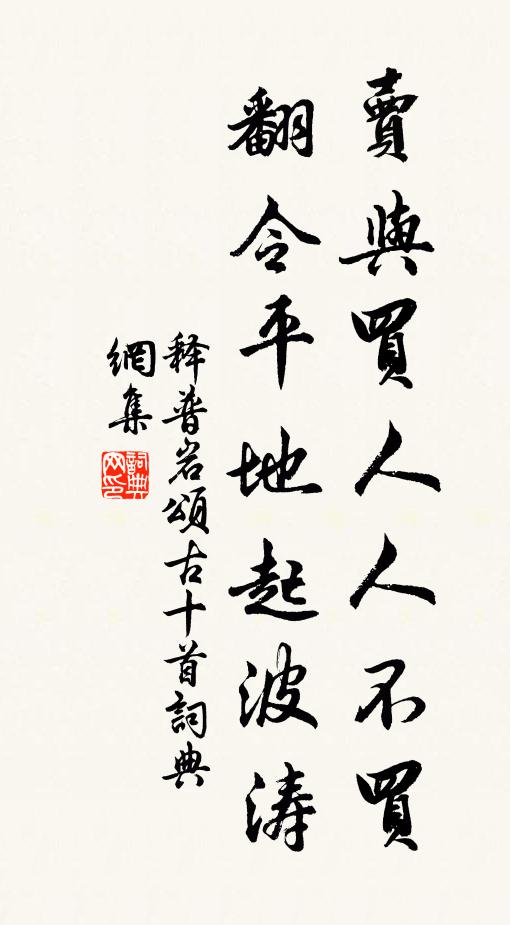 賣與買人人不買
翻令平地起波濤
释普岩頌古十首詞典
網集
詞典
网印